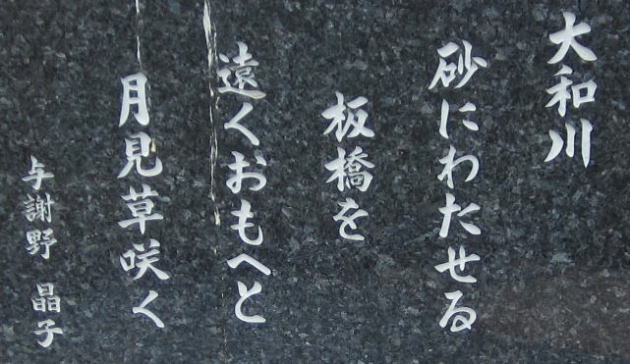 大和川
砂にわたせる
板橋を
遠くおもへと
月見草咲く
与謝野 晶子